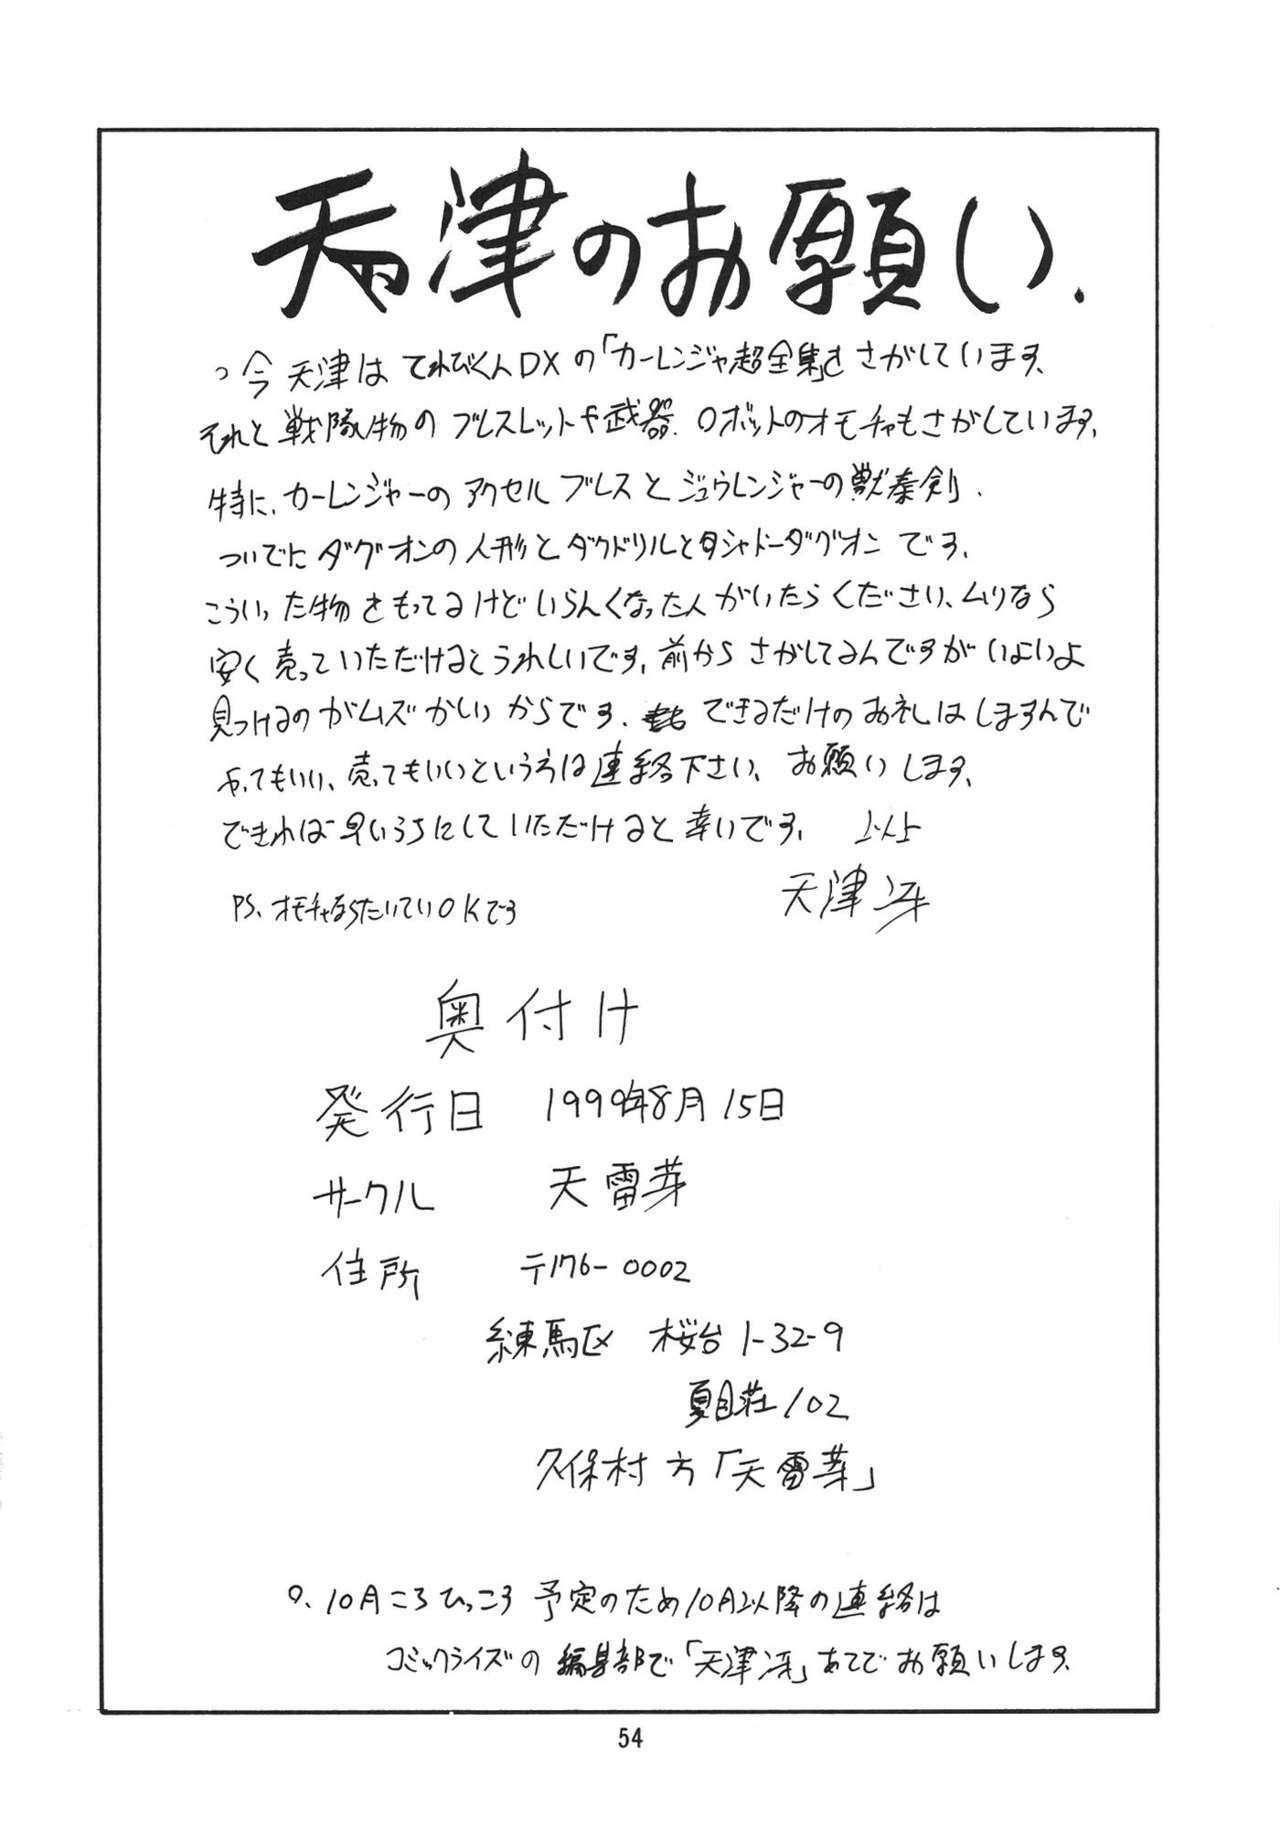 天津のお願い.
今天津はてれびくんDXの「カーレンジャ超全集」をさがしています、
それと戦隊物のブレスレットや武器、ロボットのオモチャもさがしています、
特に、カーレンジャーのアクセルブレスとジュウレンジャーの獣奏剣、
ついでにダグオンの人形とダクドリルとシャドーダグオンです、
こういった物をもってるけどいらんくなった人がいたらください、ムリなら
安く売っていただけるとうれしいです、前からさがしてるんですがいよいよ
見つけるのがムズかしいからです、できるだけのお礼はしますんで
やってもいい、売ってもいいという方は連絡下さい、お願いします、
できれば早いうちにしていただけると幸いです、 以上
天津冴
PS、オモチャならたいていOKです
奥付け
発行日 1999年8月15日
サークル 天雷芽
住所 〒176-0002
練馬区 桜台1-32-9
夏目荘102
久保村方「天雷芽」
9、10月ころひっこす予定のため10月以降の連絡は
コミックライズの編集部で「天津冴」あてでお願いします、
54